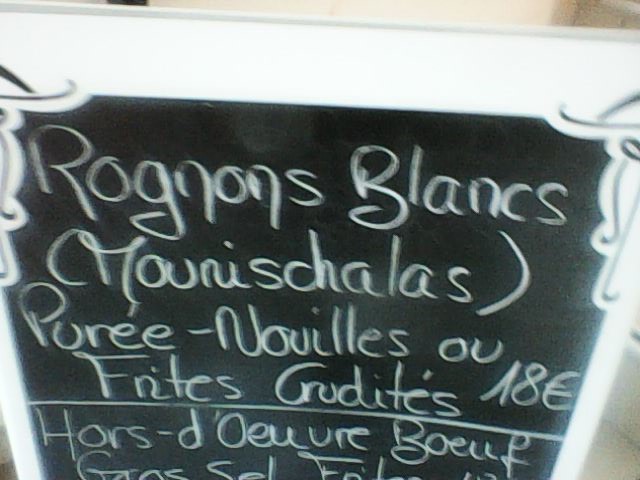 Rognons Blancs
(Mounischalas)
Purée - Nouilles ou
Frites Crudités 18€
Hors-d'Oeuvre Boeuf
Gros Sel Frites